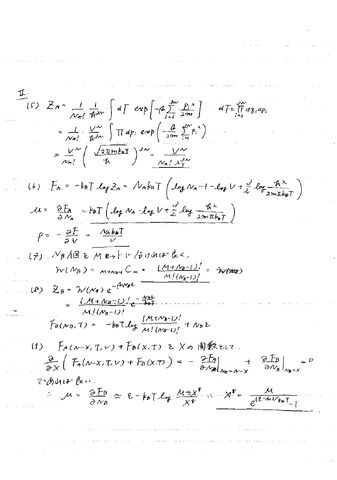 II
(5) Z_A = 1/N_A! 1/h^{3N} ∫ dΓ exp[-β Σ_{i=1}^{3N} p_i²/2m] dΓ = Π_{i=1}^{3N} dq_i dp_i
= 1/N_A! V^N/h^{3N} ∫ Π dp_i exp(-β/2m Σ_{i=1}^{3N} p_i²)
= V^N/N_A! (√(2πmk_BT)/h)^{3N} = V^N/(N_A! λ_T^{3N})
(6) F_A = -k_BT log Z_A = N_A k_BT (log N_A - 1 - log V + 3/2 log h²/(2πmk_BT))
μ = ∂F_A/∂N_A = k_BT (log N_A - log V + 3/2 log h²/(2πmk_BT))
p = -∂F/∂V = N_A k_BT/V
(7) N_B 個を M
W(N_B) = _{M+N_B-1}C_{N_B} = (M+N_B-1)!/(M!(N_B-1)!)
(8) Z_B = W(N_B) e^{-βN_Bε}
= (M+N_B-1)!/(M!(N_B-1)!) e^{-N_Bε/k_BT}
F_B(N_B,T) = -k_BT log (M+N_B-1)!/(M!(N_B-1)!) + N_Bε
(9) F_A(N-X,T,V) + F_B(X,T) を X の関数として
∂/∂X (F_A(N-X,T,V) + F_B(X,T)) = -∂F_A/∂N_A|_{N_A=N-X} + ∂F_B/∂N_B|_{N_B=X} = 0
であればよい
∴ μ = ∂F_B/∂N_B ≃ ε - k_BT log (M+X*)/X* ∴ X* = M/(e^{(ε-μ)/k_BT} - 1)